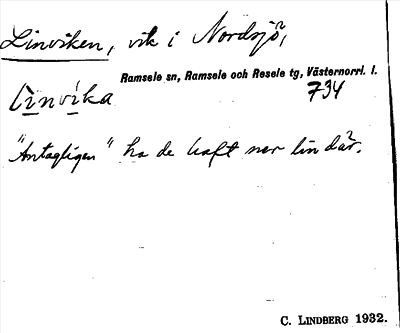 Linviken, vik i Nordsjö,
Ramsele sn, Ramsele och Resele tg, Västernorrl. l.
734
lìnvika
"Antagligen" ha de haft ner lin där.
C. LINDBERG 1932.